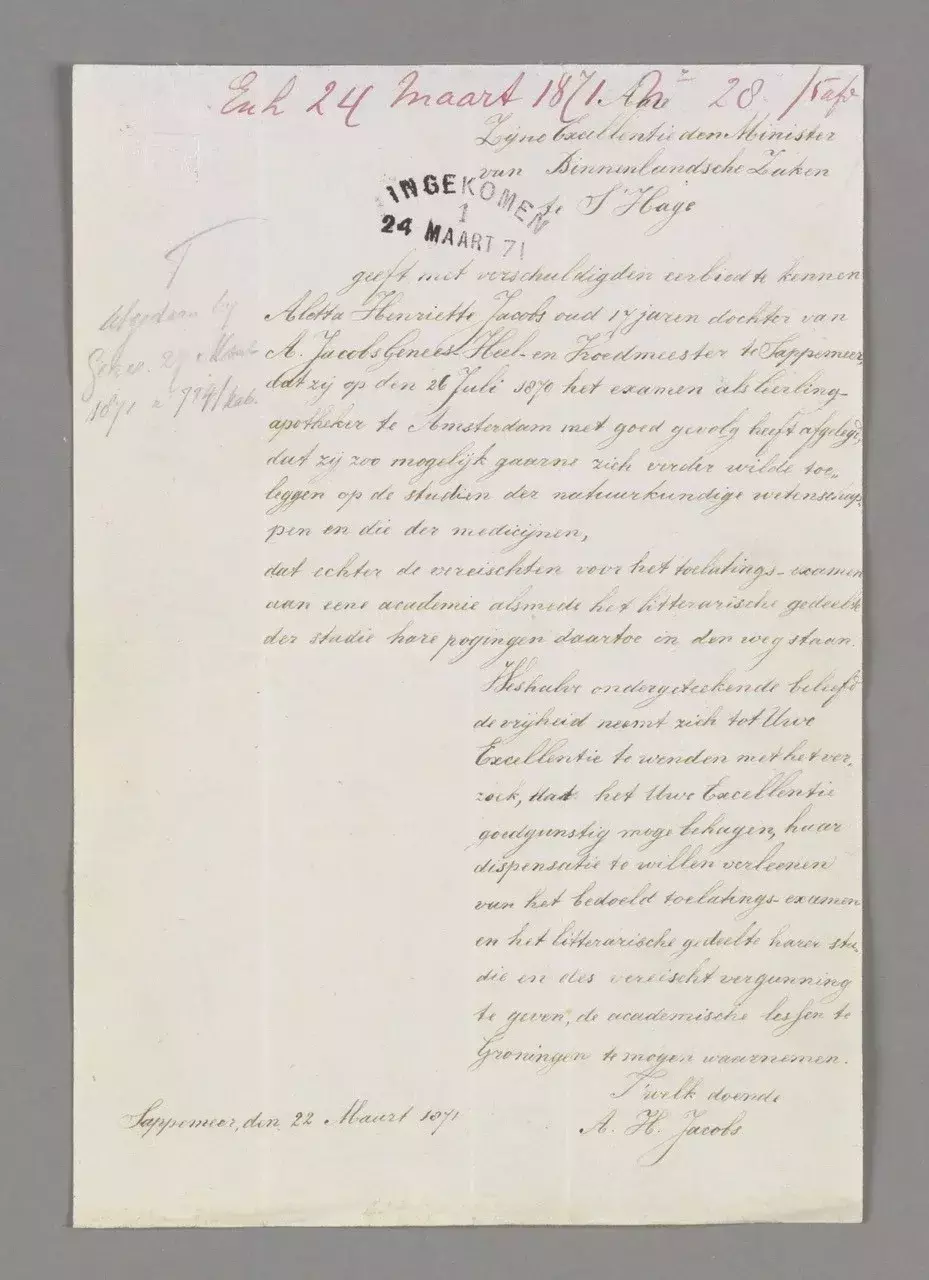 Exh 24 Maart 1871 No 28 /5 afd
Aan
Zijne Excellentie den Minister
van Binnenlandsche Zaken
te S'Hage
INGEKOMEN
1
24 MAART 71
geeft met verschuldigden eerbied te kennen
Aletta Henriette Jacobs oud 17 jaren dochter van
A. Jacobs Genees- Heel- en Vroedmeester te Sappemeer,
dat zij op den 26 Juli 1870 het examen als leerling-
apotheker te Amsterdam met goed gevolg heeft afgelegd,
dat zij zoo mogelijk gaarne zich verder wilde toe-
leggen op de studien der natuurkundige wetenschap-
pen en die der medicijnen,
dat echter de vereischten voor het toelatings-examen
aan eene academie alsmede het litterarische gedeelte
der studie hare pogingen daartoe in den weg staan.
Afgedaan by
27 Maart
1871
Weshalve ondergeteekende beleefd
de vrijheid neemt zich tot Uwe
Excellentie te wenden met het ver-
zoek, dat het Uwe Excellentie
goedgunstig moge behagen, haar
dispensatie te willen verleenen
van het bedoeld toelatings-examen
en het litterarische gedeelte harer stu-
die en des vereischt vergunning
te geven, de academische lessen te
Groningen te mogen waarnemen.
T'welk doende
A. H. Jacobs
Sappemeer, den 22 Maart 1871